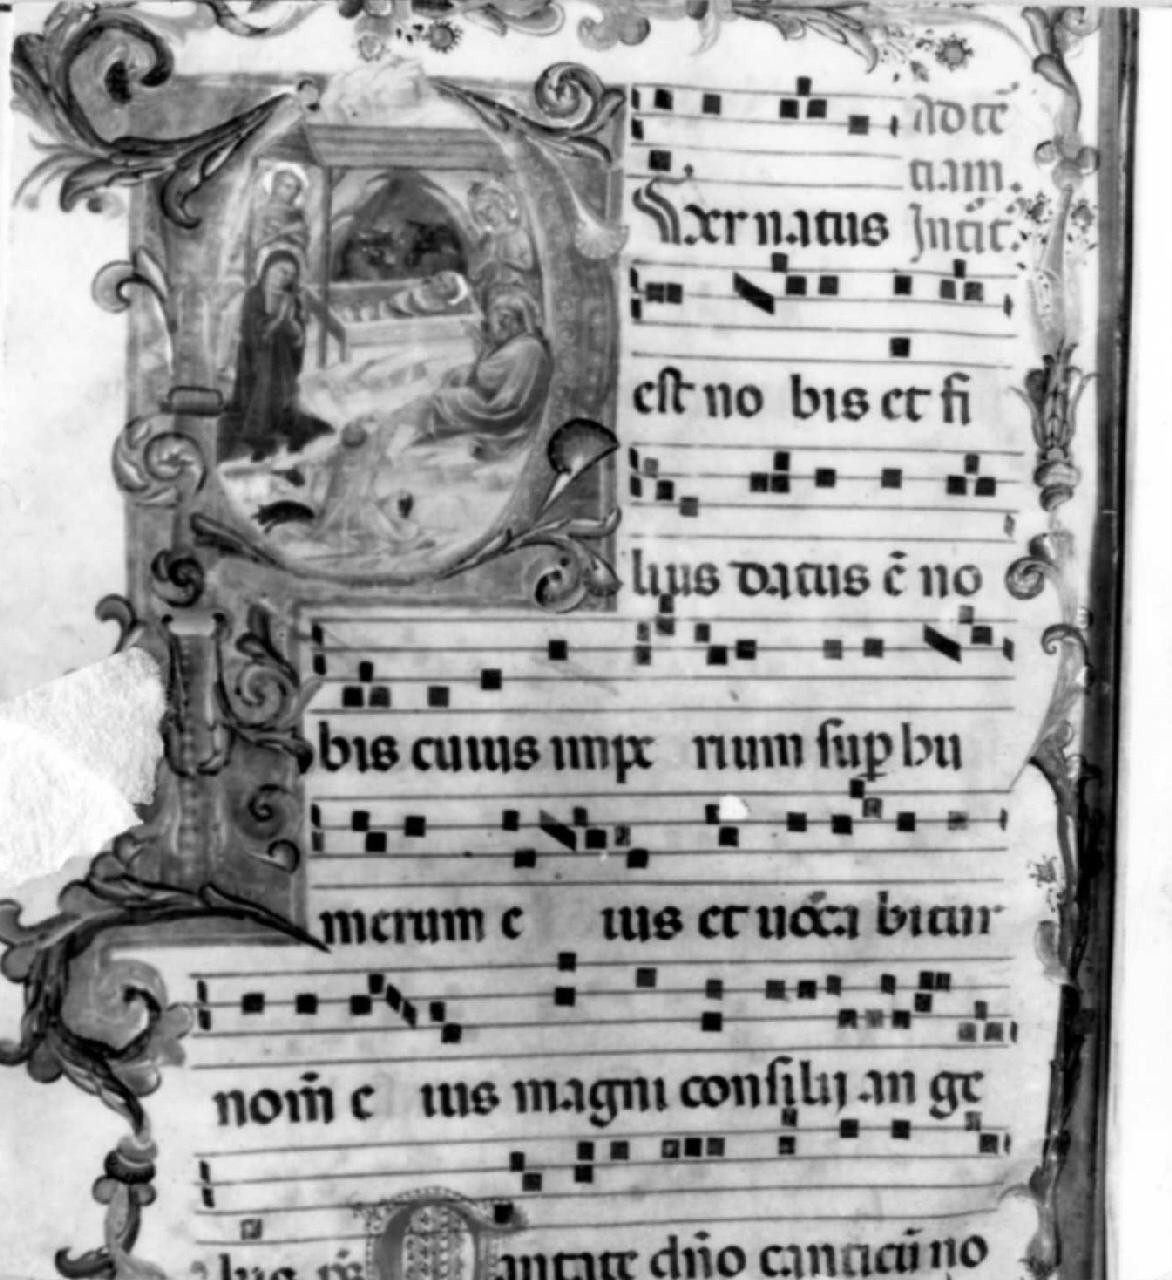 ad tē
ciam.
P uer natus Incōt.
est no bis et fi
lius datus ē no
bis cuius impe rium sup hu
merum e ius et uoca bitur
nom̄ e ius magni consilij an ge
lus p̄s Cantate dn̄o canticū no